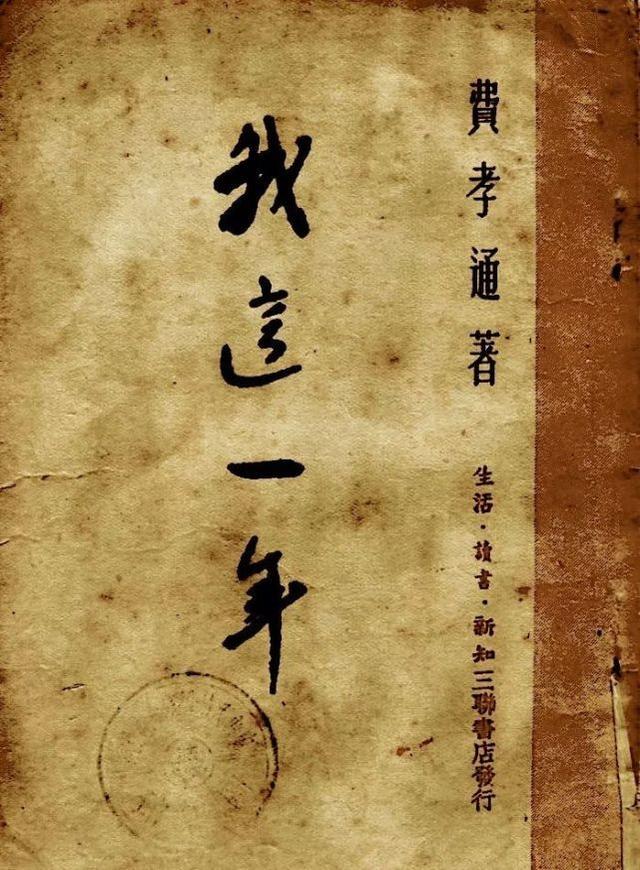 費孝通著
生活·讀書·新知三聯書店發行
我這一年